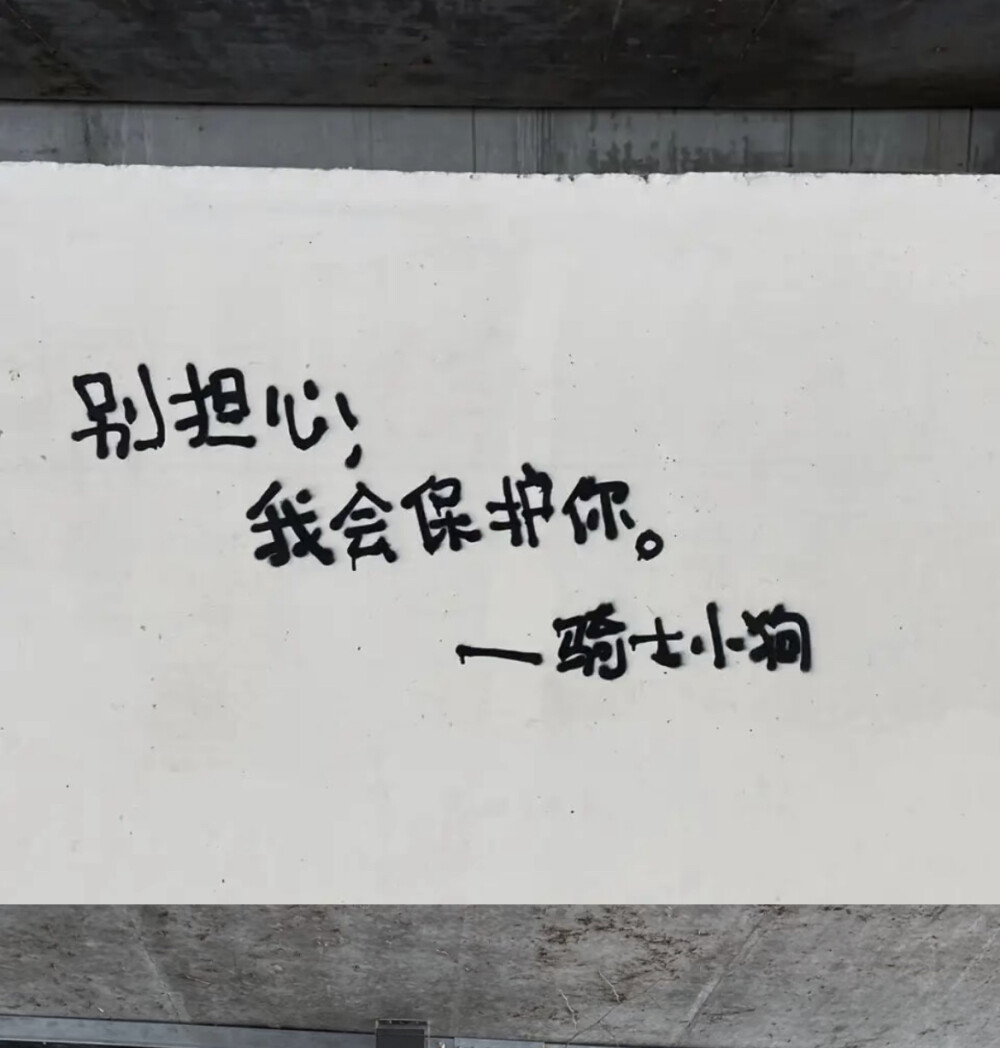 别担心，
我会保护你。
—骑士小狗